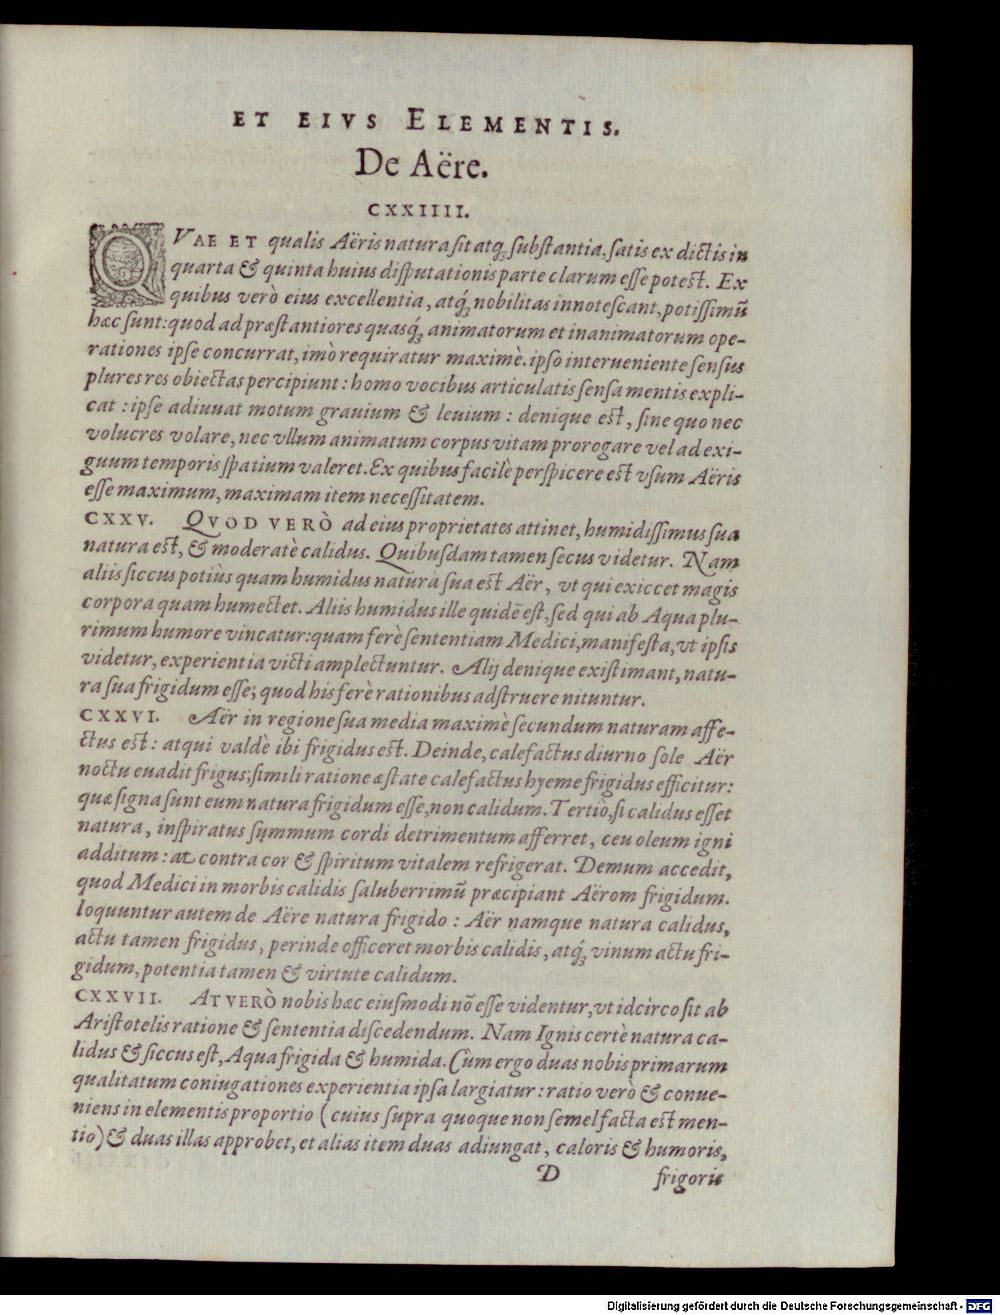 ET EIVS ELEMENTIS.
De Aëre.
CXXIIII.
QVAE ET qualis Aëris natura sit atq́; substantia, satis ex dictis in
quarta & quinta huius disputationis parte clarum esse potest. Ex
quibus verò eius excellentia, atq́; nobilitas innotescant, potissimũ
hæc sunt: quod ad præstantiores quasq́; animatorum et inanimatorum ope-
rationes ipse concurrat, imò requiratur maximè. ipso interueniente sensus
plures res obiectas percipiunt: homo vocibus articulatis sensa mentis expli-
cat: ipse adiuuat motum grauium & leuium: denique est, sine quo nec
volucres volare, nec vllum animatum corpus vitam prorogare vel ad exi-
guum temporis spatium valeret. Ex quibus facilè perspicere est vsum Aëris
esse maximum, maximam item necessitatem.
CXXV. QVOD VERÒ ad eius proprietates attinet, humidissimus sua
natura est, & moderatè calidus. Quibusdam tamen secus videtur. Nam
aliis siccus potiùs quam humidus natura sua est Aër, vt qui exiccet magis
corpora quam humectet. Aliis humidus ille quidẽ est, sed qui ab Aqua plu-
rimum humore vincatur: quam ferè sententiam Medici, manifesta, vt ipsis
videtur, experientia victi amplectuntur. Alij denique existimant, natu-
ra sua frigidum esse; quod his ferè rationibus adstruere nituntur.
CXXVI. Aër in regione sua media maximè secundum naturam affe-
ctus est: atqui valdè ibi frigidus est. Deinde, calefactus diurno sole Aër
noctu euadit frigus; simili ratione æstate calefactus hyeme frigidus efficitur:
quæ signa sunt eum natura frigidum esse, non calidum. Tertiò, si calidus esset
natura, inspiratus summum cordi detrimentum afferret, ceu oleum igni
additum: at contra cor & spiritum vitalem refrigerat. Demum accedit,
quod Medici in morbis calidis saluberrimũ præcipiant Aërom frigidum.
loquuntur autem de Aëre natura frigido: Aër namque natura calidus,
actu tamen frigidus, perinde officeret morbis calidis, atq́; vinum actu fri-
gidum, potentia tamen & virtute calidum.
CXXVII. AT VERÒ nobis hæc eiusmodi nõ esse videntur, vt idcirco sit ab
Aristotelis ratione & sententia discedendum. Nam Ignis certè natura ca-
lidus & siccus est, Aqua frigida & humida. Cùm ergo duas nobis primarum
qualitatum coniugationes experientia ipsa largiatur: ratio verò & conue-
niens in elementis proportio (cuius supra quoque non semel facta est men-
tio) & duas illas approbet, et alias item duas adiungat, caloris & humoris,
D frigoris
Digitalisierung gefördert durch die Deutsche Forschungsgemeinschaft - DFG